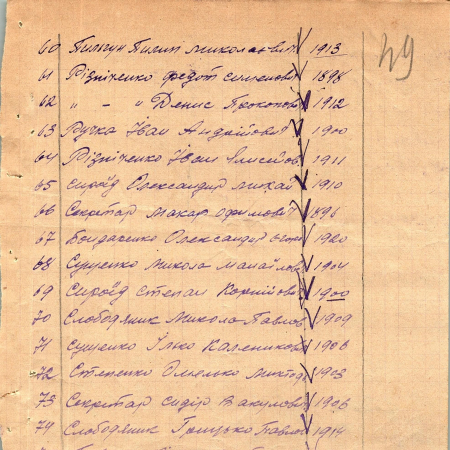 49
60 Пилип Миколаєвич 1913
61 Різніченко Федот Семенович 1898
62 " - " Денис Прокопов 1912
63 Ручка Іван Андрійович 1900
64 Різніченко Іван Єлисейов 1911
65 Сироїд Олександр Михай 1910
66 Секретар Макар Юхимович 1896
67 Бондаренко Олександр 1920
68 Сущенко Микола Михайлов 1904
69 Сироїд Степан Корнійович 1900
70 Слободяник Микола Павлов 1909
71 Сущенко Ілько Калеников 1908
72 Степенко Омелько 1903
73 Секретар Сидір Вакулович 1906
74 Слободяник Грицько Павлов 1914